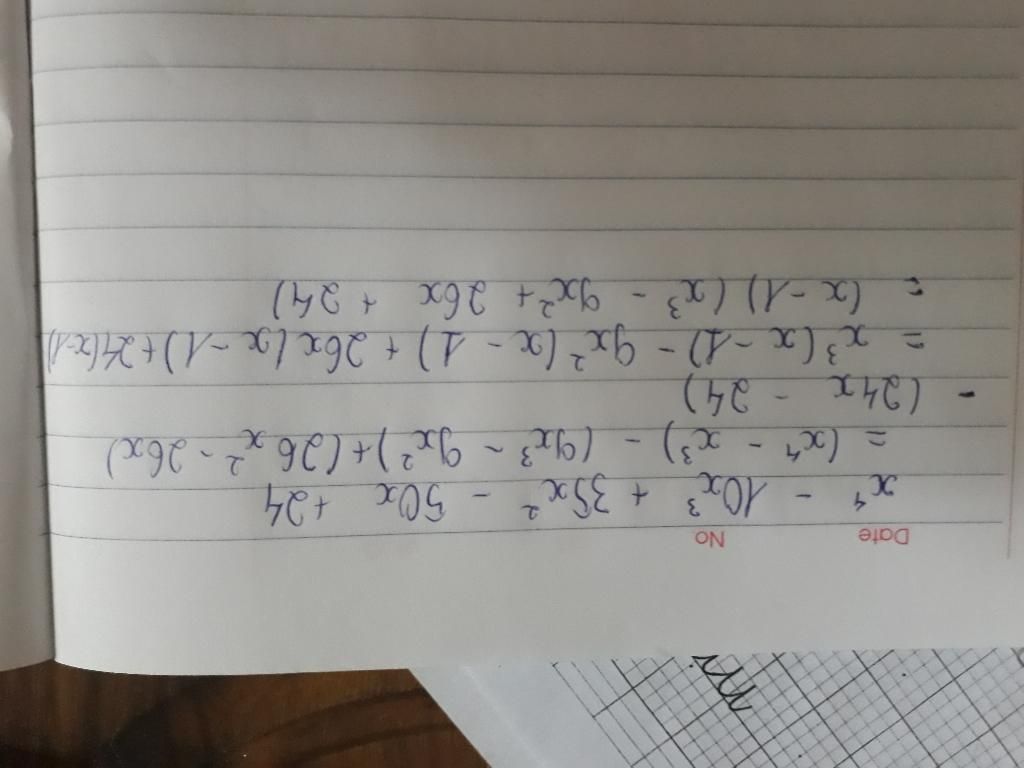 Date No
x⁴ - 10x³ + 35x² - 50x + 24
= (x⁴ - x³) - (9x³ - 9x²) + (26x² - 26x)
- (24x - 24)
= x³(x - 1) - 9x²(x - 1) + 26x(x - 1) + 24(x-1)
= (x - 1)(x³ - 9x² + 26x + 24)